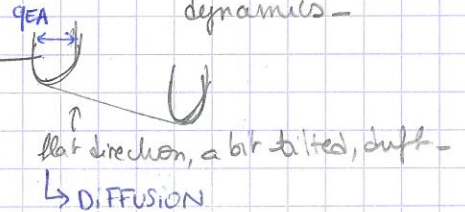 dynamics -
qEA
flat direction, a bit tilted, drift -
↳ DIFFUSION